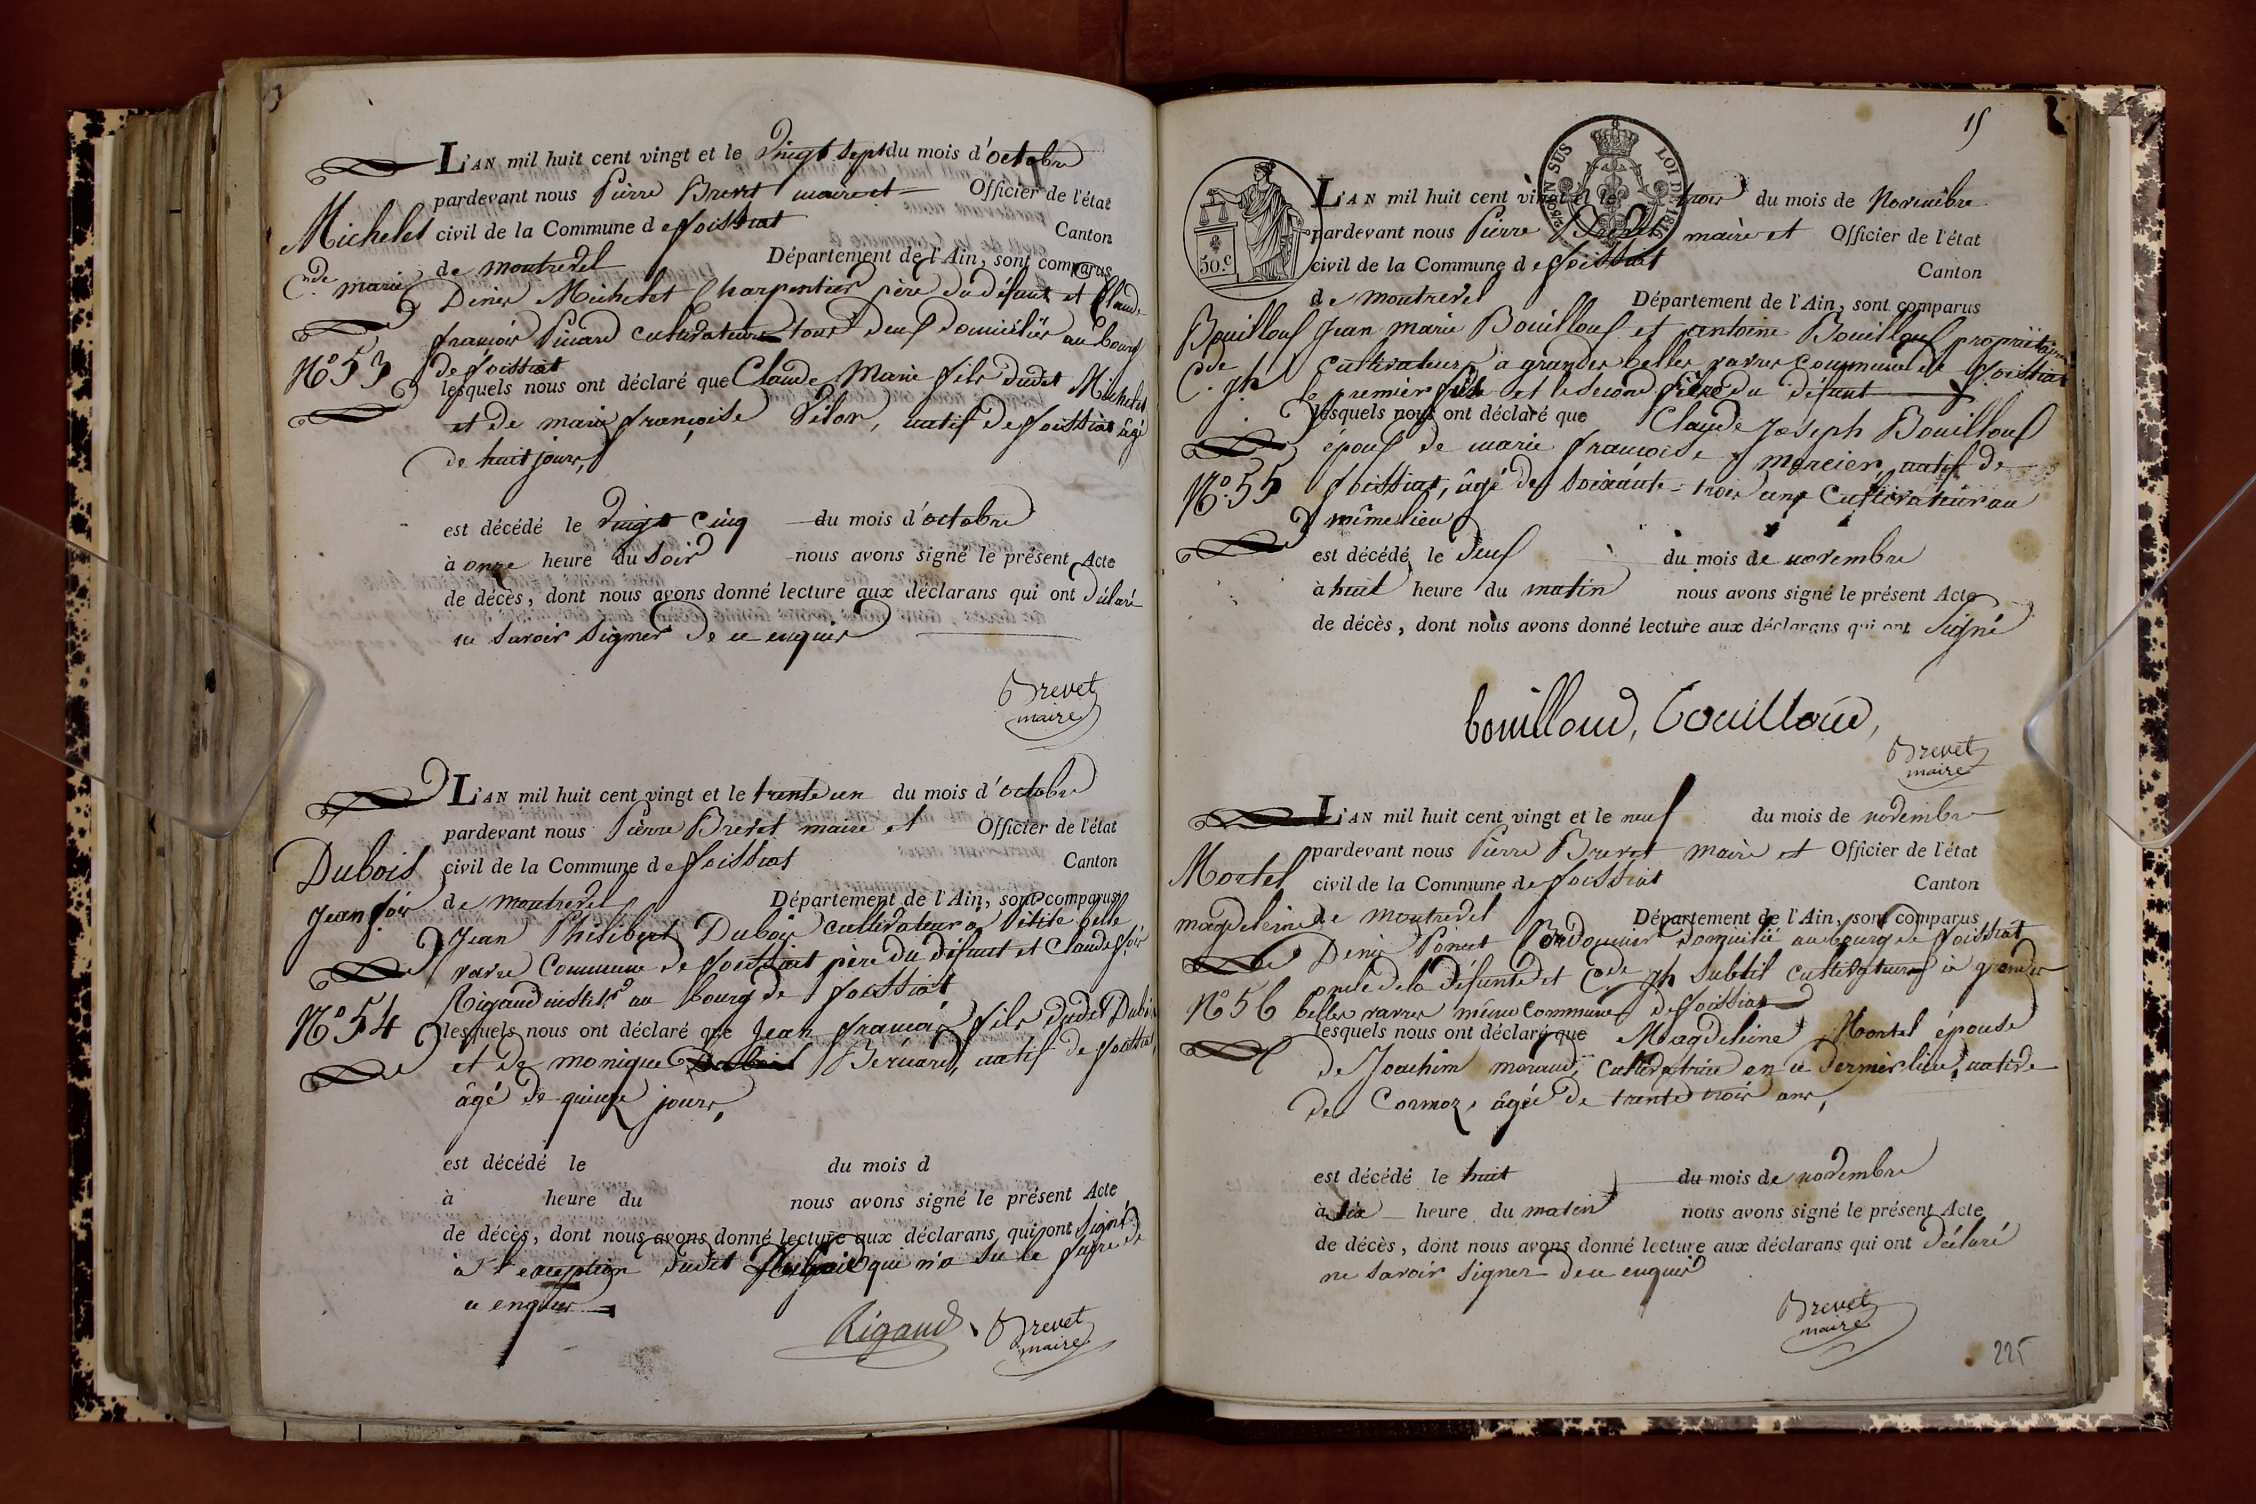 L'AN mil huit cent vingt et le vingt sept du mois d'octobre
pardevant nous Pierre Brevet maire et Officier de l'état
Michelet civil de la Commune de foissiat Canton
de montrevel Département de l'Ain, sont comparus
Cde marie Denis Michelet Charpentier père du défunt et Claude
françois Picard cultivateur tous deux domiciliés au bourg
N° 53 de foissiat
lesquels nous ont déclaré que Claude Marie fils dudit Michelet
et de marie françoise Vélon, natif de foissiat âgé
de huit jours,
est décédé le vingt cinq du mois d'octobre
à onze heure du soir nous avons signé le présent Acte
de décès, dont nous avons donné lecture aux déclarans qui ont déclaré
ne savoir signer de ce enquis
Brevet
maire
L'AN mil huit cent vingt et le trente un du mois d'octobre
pardevant nous Pierre Brevet maire et Officier de l'état
Dubois civil de la Commune de foissiat Canton
Jean fois de montrevel Département de l'Ain, sont comparus
Jean Philibert Dubois cultivateur à Petite belle
vavre Commune de foissiat père du défunt et Claude fois
Rigaud instr au bourg de foissiat
N° 54 lesquels nous ont déclaré que Jean françois fils dudit Dubois
et de monique Bernard, natif de foissiat,
âgé de quinze jours,
est décédé le du mois d
à heure du nous avons signé le présent Acte
de décès, dont nous avons donné lecture aux déclarans qui ont signé
à l'exception dudit Dubois qui n'a su le faire de
ce enquis
Rigaud Brevet
maire
15
50.c
TIMBRE ON SUS LOI DE 1816
L'AN mil huit cent vingt et le trois du mois de Novembre
pardevant nous Pierre Brevet maire et Officier de l'état
civil de la Commune de foissiat Canton
de montrevel Département de l'Ain, sont comparus
Bouilloux Jean marie Bouilloux et antoine Bouilloux propriétaires
Cde jph cultivateurs à grandes belles vavres commune de foissiat
le premier fils et le second frère du défunt
lesquels nous ont déclaré que Claude Joseph Bouilloux
époux de marie françoise mercier, natif de
N° 55 foissiat, âgé de soixante-trois ans Cultivateur au
même lieu
est décédé le deux du mois de novembre
à huit heure du matin nous avons signé le présent Acte
de décès, dont nous avons donné lecture aux déclarans qui ont signé
bouilloud, bouilloud,
Brevet
maire
L'AN mil huit cent vingt et le neuf du mois de novembre
pardevant nous Pierre Brevet maire et Officier de l'état
Mortel civil de la Commune de foissiat Canton
magdeleine de montrevel Département de l'Ain, sont comparus
Denis Poncet Cordonnier domicilié au bourg de foissiat
oncle de la défunte et Cde jph subtil cultivateur à grandes
N° 56 belles vavres même commune de foissiat
lesquels nous ont déclaré que Magdeleine Mortel épouse
de Joachim moraud, cultivatrice en ce dernier lieu, native
de Cormoz, âgée de trente trois ans,
est décédé le huit du mois de novembre
à six heure du matin nous avons signé le présent Acte
de décès, dont nous avons donné lecture aux déclarans qui ont déclaré
ne savoir signer de ce enquis
Brevet
maire
225